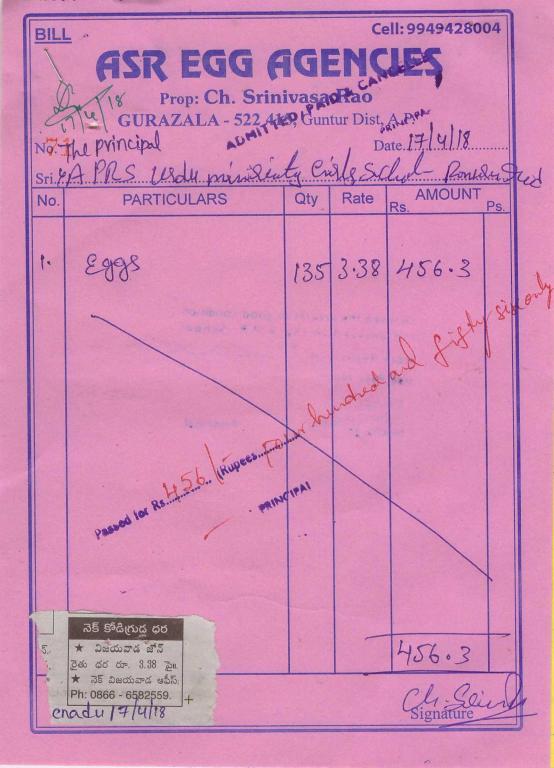 BILL
Cell: 9949428004
ASR EGG AGENCIES
Prop: Ch. Srinivasa Rao
GURAZALA - 522 415, Guntur Dist, A.P.
17/4/18
ADMITTED / PAID & CANCELLED
PRINCIPAL
No. 71 The principal
Date. 17/4/18
Sri. APRS Urdu minority Girls School
No. PARTICULARS Qty Rate AMOUNT
Rs. Ps.
1. Eggs 135 3.38 456.3
Passed for Rs. 456/- (Rupees Four hundred and fifty six only
PRINCIPAL
456.3
నెక్ కోడిగ్రుడ్ల ధర
★ విజయవాడ జోన్
రైతు ధర రూ. 3.38 పై॥
★ నెక్ విజయవాడ ఆఫీస్:
Ph: 0866 - 6582559.
enadu 17/4/18
Signature